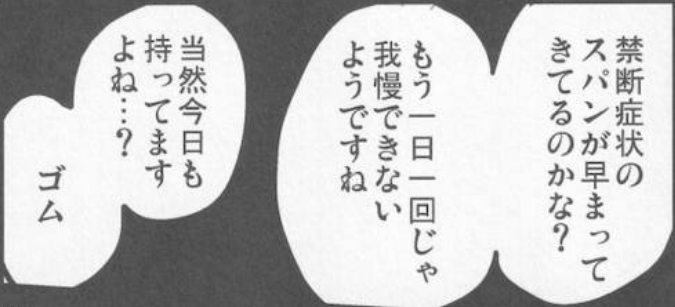 禁断症状の
スパンが早まって
きてるのかな？
もう一日一回じゃ
我慢できない
ようですね
当然今日も
持ってます
よね…？
ゴム